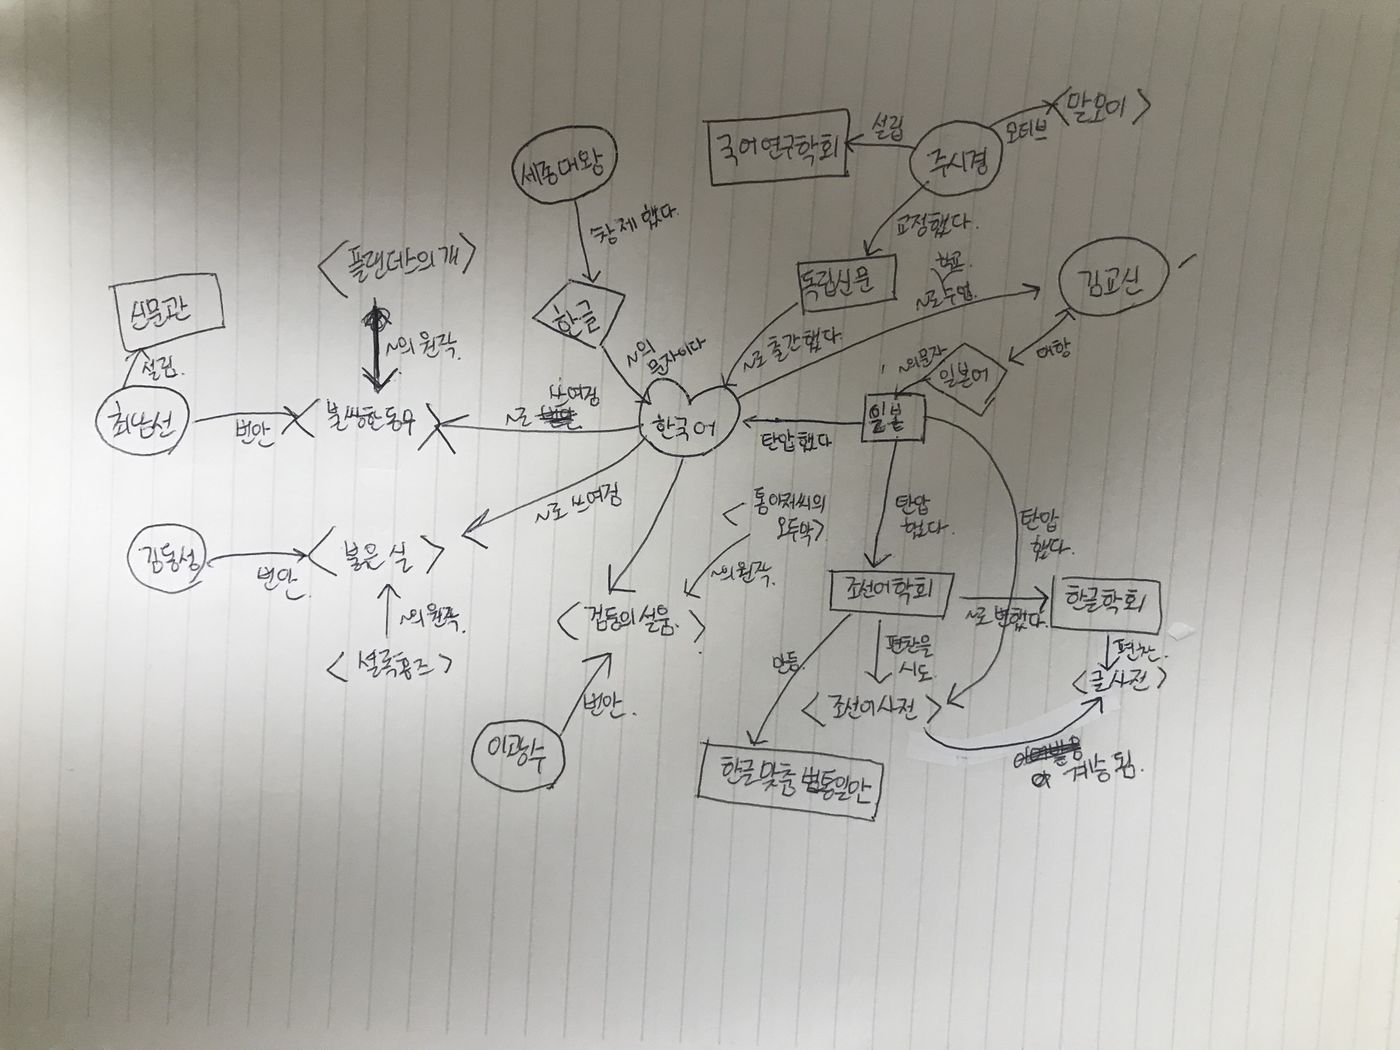 <말모이>
국어연구학회
설립
주시경
모티브
세종대왕
창제했다.
교정했다.
<플랜더스의 개>
독립신문
학교
~로 수업.
김교신
신문관
한글
~의 원작.
~의
문자이다
~로 출간했다.
~의 문자
일본어
대항
설립.
최남선
번안
<불쌍한 동무>
쓰여정
~로
한국어
탄압했다
일본
~로 쓰여정
<톰 아저씨의
오두막>
탄압
했다.
탄압
했다.
김동성
번안.
<붉은 실>
~의 원작.
조선어학회
~로 변했다.
한글학회
~의 원작.
<검둥의 설움.>
<셜록홈즈>
만듦.
편찬을
시도.
편찬.
<글사전>
<조선어사전>
이광수
번안.
한글맞춤법통일안
계승됨.